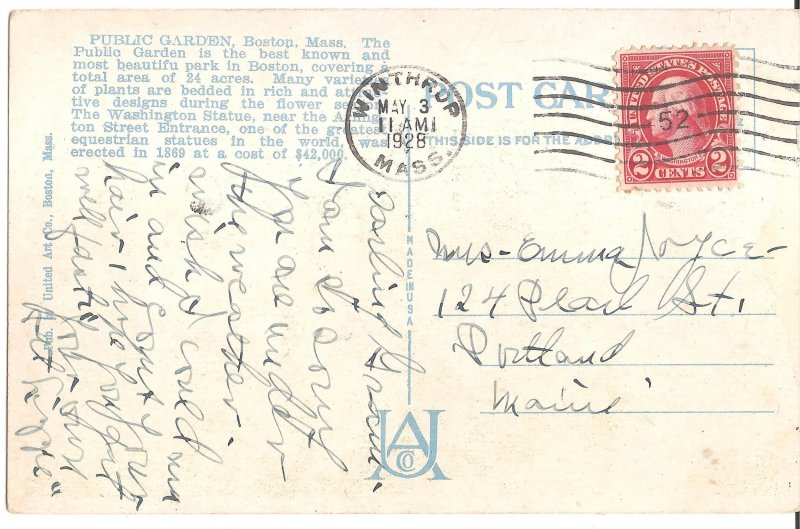 PUBLIC GARDEN, Boston, Mass. The
Public Garden is the best known and
most beautifu park in Boston, covering a
total area of 24 acres. Many varie
of plants are bedded in rich and at
tive designs during the flower se
The Washington Statue, near the Arling-
ton Street Entrance, one of the greates
equestrian statues in the world, was
erected in 1869 at a cost of $42,000.
WINTHROP
MAY 3
11 AM
1928
MASS.
POST CAR
THIS SIDE IS FOR THE ADDR
UNITED STATES POSTAGE
52
WASHINGTON
2 CENTS 2
Pub. by United Art Co., Boston, Mass.
MADE IN USA
UACO
Darling
I am so sorry
you are under
the weather.
wish I could run
in and count your
hair, hope you get
well fast
Mrs- Emma Joyce-
124 Pearl St.
Portland
Maine